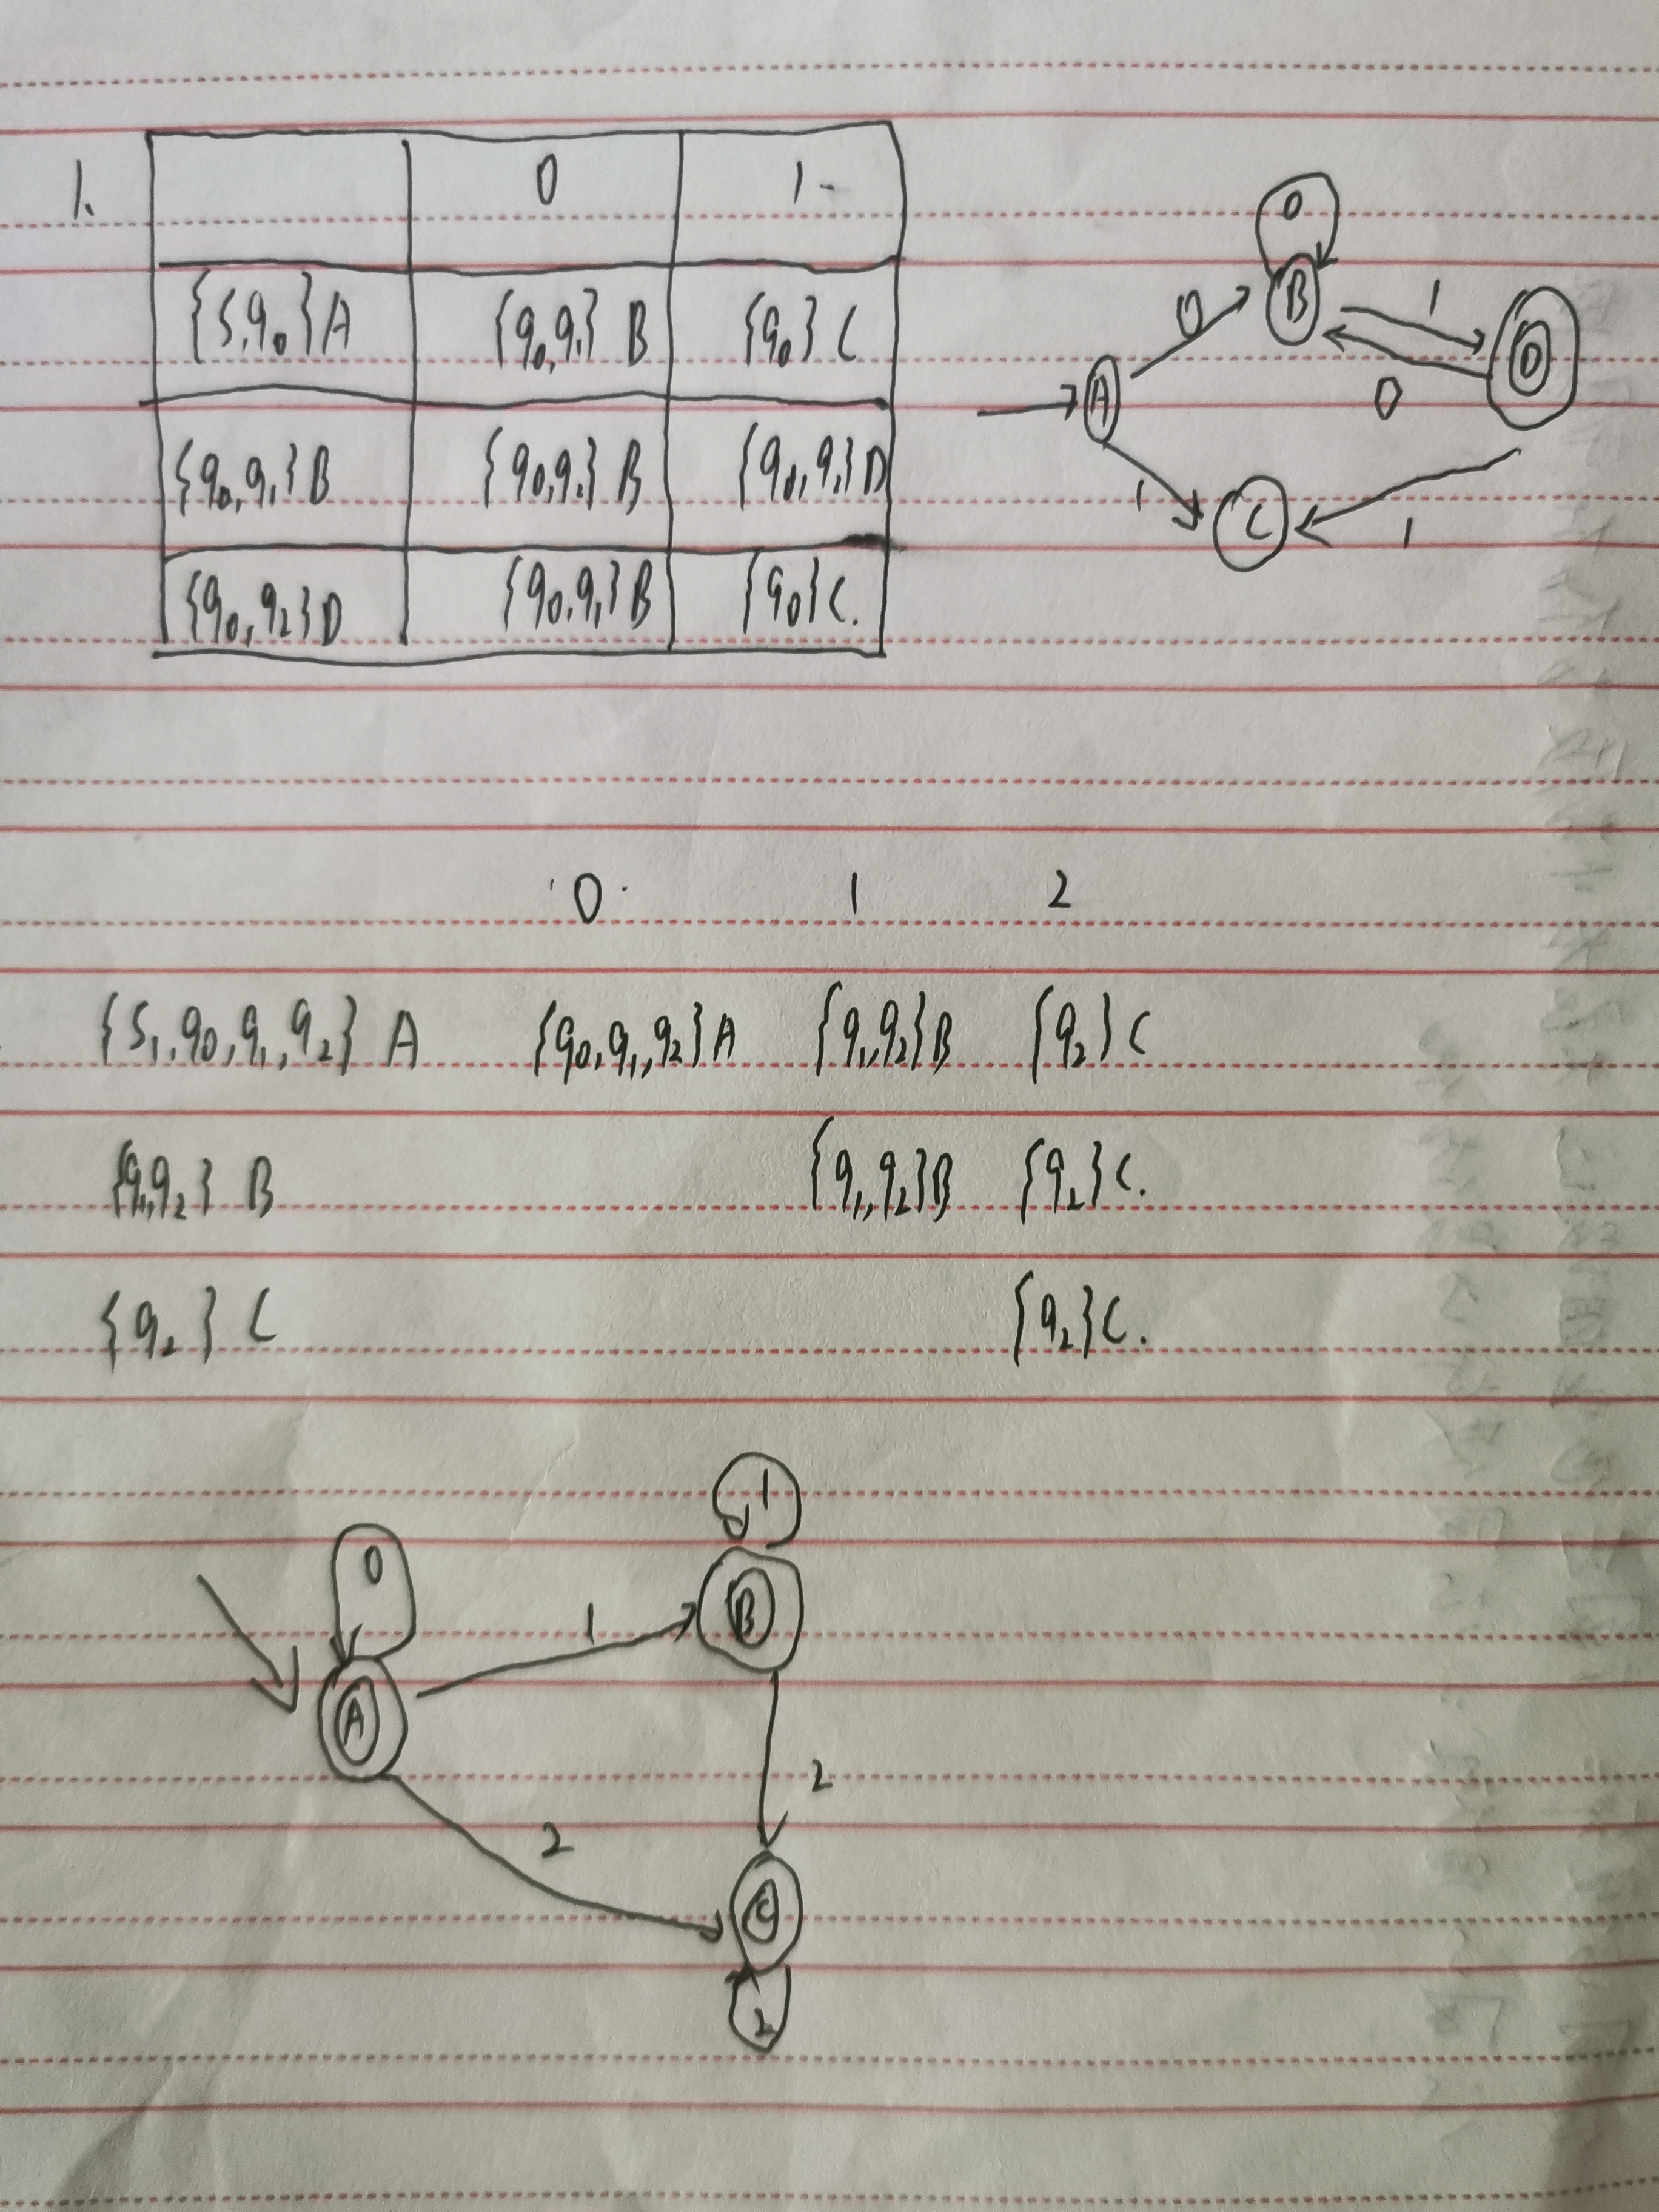 1. 0 1
{S,q0}A {q0,q1}B {q0}C
{q0,q1}B {q0,q1}B {q0,q2}D
{q0,q2}D {q0,q1}B {q0}C.
0
B 1
0 D
A 0
1 C 1
0 1 2
{S,q0,q1,q2} A {q0,q1,q2}A {q1,q2}B {q2}C
{q1,q2} B {q1,q2}B {q2}C.
{q2} C {q2}C.
1
0
1 B
A
2
2
C
2